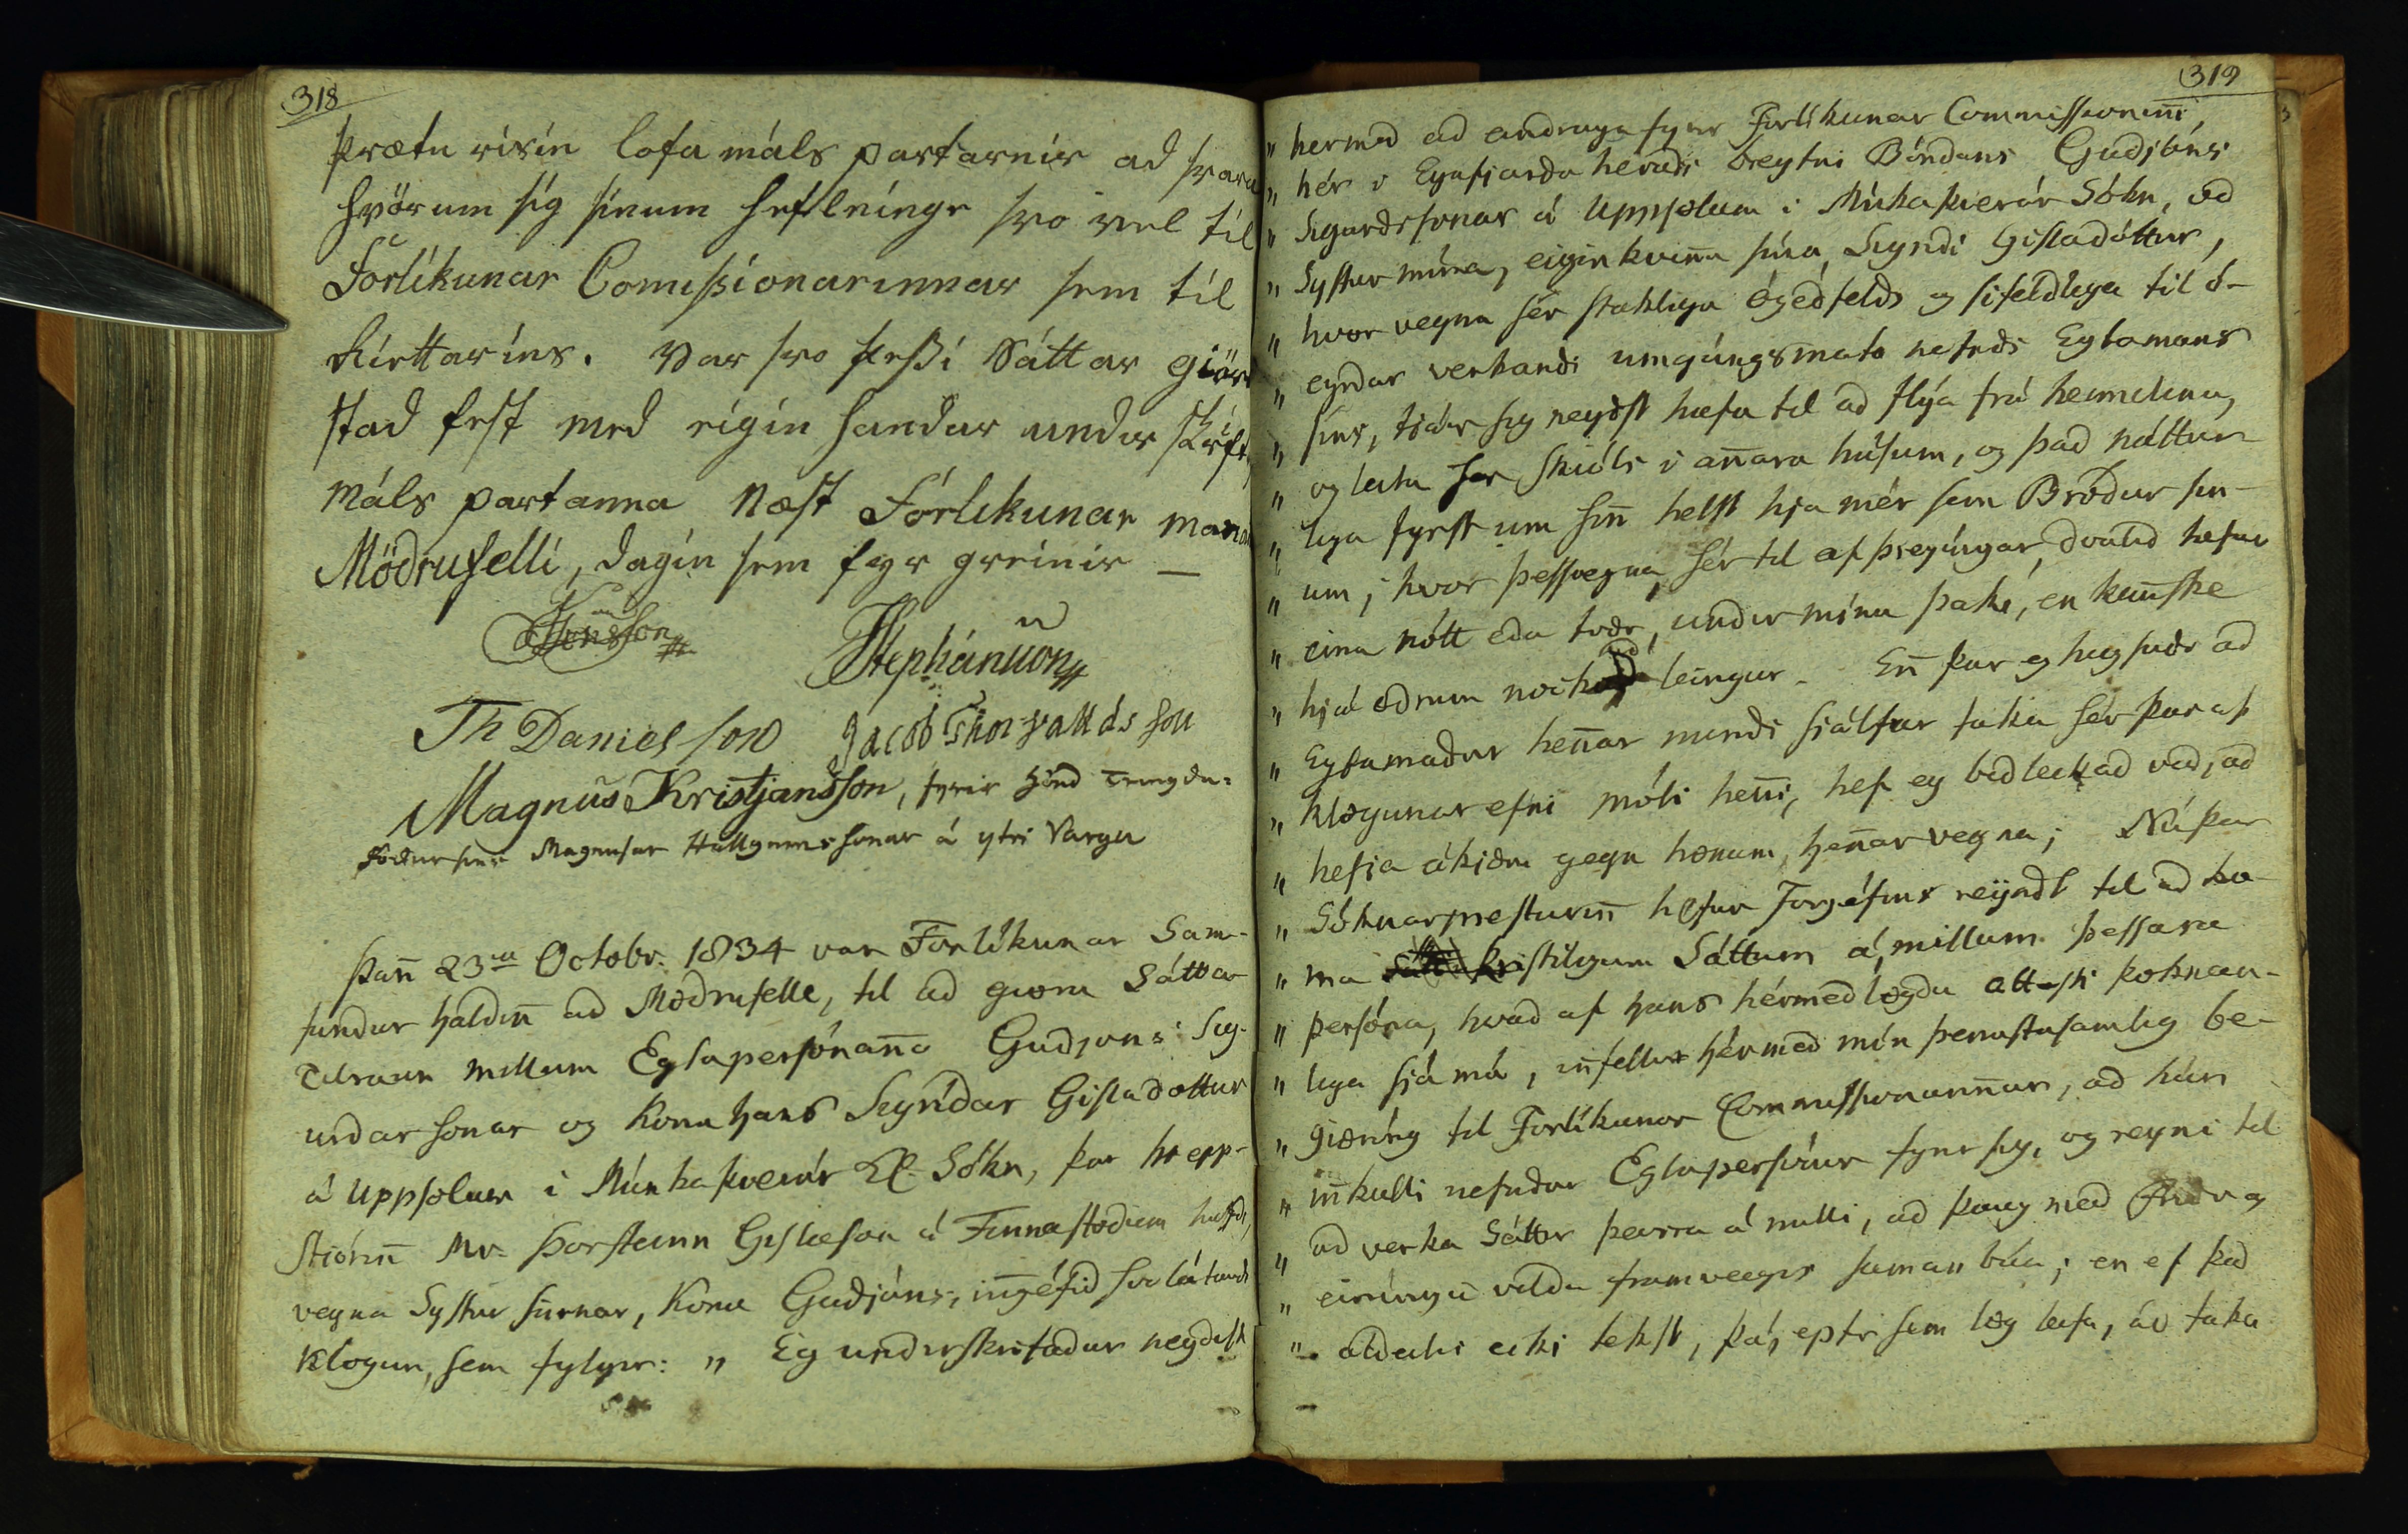 318
þrætu risin lofa máls partarnir að svara
hvörum sig sinum helmingr svo vel til
Forlíkunar Comissionarinnar sem til
Riettarins. Var svo þessi Sáttar giörd
stað fest með eigin handar undir skrift,
máls partanna næst Forlikunar manna
Möðrufelli, dagin sem fyr greinir —
Stephánsson
Th Daniels son Jacob Thorvalldsson
Magnús Kristjansson, fyrir hönd Tengda-
föður sins Magnusar Hallgrimssonar á ytri Varga
Þann 23ia Octobr. 1834 var Forlíkunar Sam-
fundur haldinn að Möðrufelle, til að giöra Sáttar
Tilraun millum Egtapersónanna Guðjóns Sig-
urðarsonar og Konu hans Sigríðar Gisladóttur
á Uppsölum i Múnkaþverár Kl. Sókn, þar hrepp-
stiórinn Mr. Þorsteinn Gislason á Finnastöðum hafði,
vegna Systur sinnar, Konu Guðjóns, inngéfið svo látandi
Klögun, sem fylgir: „ Eg undirskrifaður neyðist
319
„ hermeð að andraga fyrir Forlíkunar Commissioninni,
„ hér i Eyafjarðar héraði breytni Bóndans Guðjóns
„ Sigurðssonar á Uppsölum i Múkaþverár Sókn, við
„ Systur mína, eiginkvinnu sína, Sigríði Gisladóttur,
„ hvor vegna sér stakliga ógéðfelds og sifeldlega til ó-
„ eyrðar verkandi umgángsmáta nefnds Egtamans
„ síns, tjáir sig neyðst hafa til að flýa frá heimilinu,
„ og leita sér skióls i annara húsum, og það náttúr-
„ lega fyrst um sinn helst hja mér sem Bróður sín-
„ um; hvor þessvegna, sér til afþreyingar, dvalið hefur
„ eina nótt eða tvær, undir mínu þaki, en kannske
„ hjá öðrum nockuð leingur. Enn þar eg hugsaði að
„ Egtamaður hennar mundi siálfur taka sér þar af
„ Klögunar efni móti henni, hef eg bið leikað við, að
„ hefja ákiæru gegn hönum, hennar vegna; Nú þar
„ Sóknarpresturinn hefur Forgéfins reyndt til að ko-
„ ma kristilegum Sáttum á, millum þessara
„ persóna, hvað af hans hérmeðlögðu attesti þoknan-
„ lega sjá má, innfellur hérmeð mín þenustusamlig be-
„ giæring til Forlíkunar Commissionarinnar, að hún
„ innkalli nefndar Egtapersónur fyrir sig, og reyni til
„ að verka Sáttir þeirra á milli, að þaug með Frið og
„ einingu vildu framvegis saman búa; en ef það
„ aldeilis ecki tekst, þá, eptir sem lög leifa, að taka